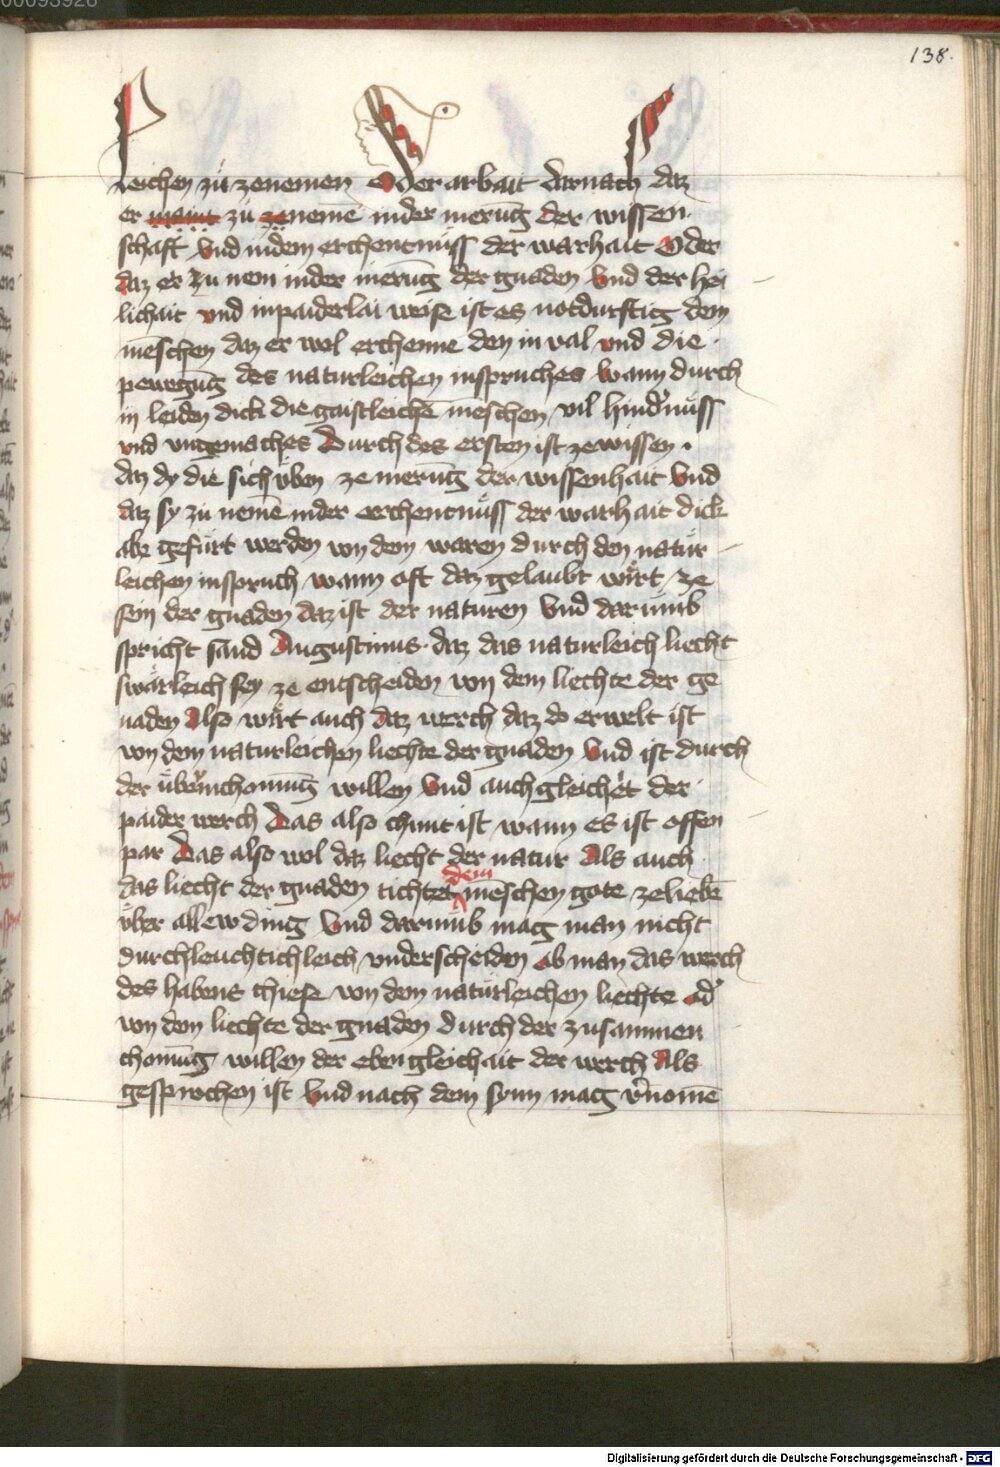 00093926
138.
leichen zů zenemen Oder arbait darnach daz
er maint zů zenemē in der merūg der wissen
schaft vnd in dem erchentnůss der warhait Oder
daz er zu nem in der merūg der gnaden vnd der hei
lichait vnd in paiderlai weise ist es notdurftig dem
mēschen daz er wol erchenne den in val vnd die
pewegūg des naturleichen inspruches wann durch
in leiden dick die gaistleichē mēschen vil hindnůss
vnd vngemaches Durch des ersten ist ze wissen
daz dy die sich vben ze merūg der wissenhait vnd
daz sy zu nemē in der erchentnůss der warhait dick
abe gefürt werden von dem waren durch den natür
leichen inspruch wann oft daz gelaubt wirt ze
sein der gnaden daz ist der naturen vnd darumb
spricht sand Augustinus daz das naturleich liecht
swarleich sey ze entscheiden von dem liechte der ge
naden Also wirt auch daz werch daz do erwelt ist
von dem naturleichen liechte der gnaden vnd ist durch
der willen vnd auch gleichet der
paider werch Das also chunt ist wann es ist offen
par Das also wol daz liecht der natur Als auch
das liecht der gnaden tichtet dem mēschen gote ze liebē
über allew ding vnd darumb mag man nicht
durchleuchtichleich vnderscheiden ob man das werch
des habens chiese von dem natürleichen liechte od
von dem liechte der gnaden durch der zusammen
chomūg willen der ebengleichait der werch Als
gesprochen ist vnd nach dem synn mag vnomē
Digitalisierung gefördert durch die Deutsche Forschungsgemeinschaft - DFG